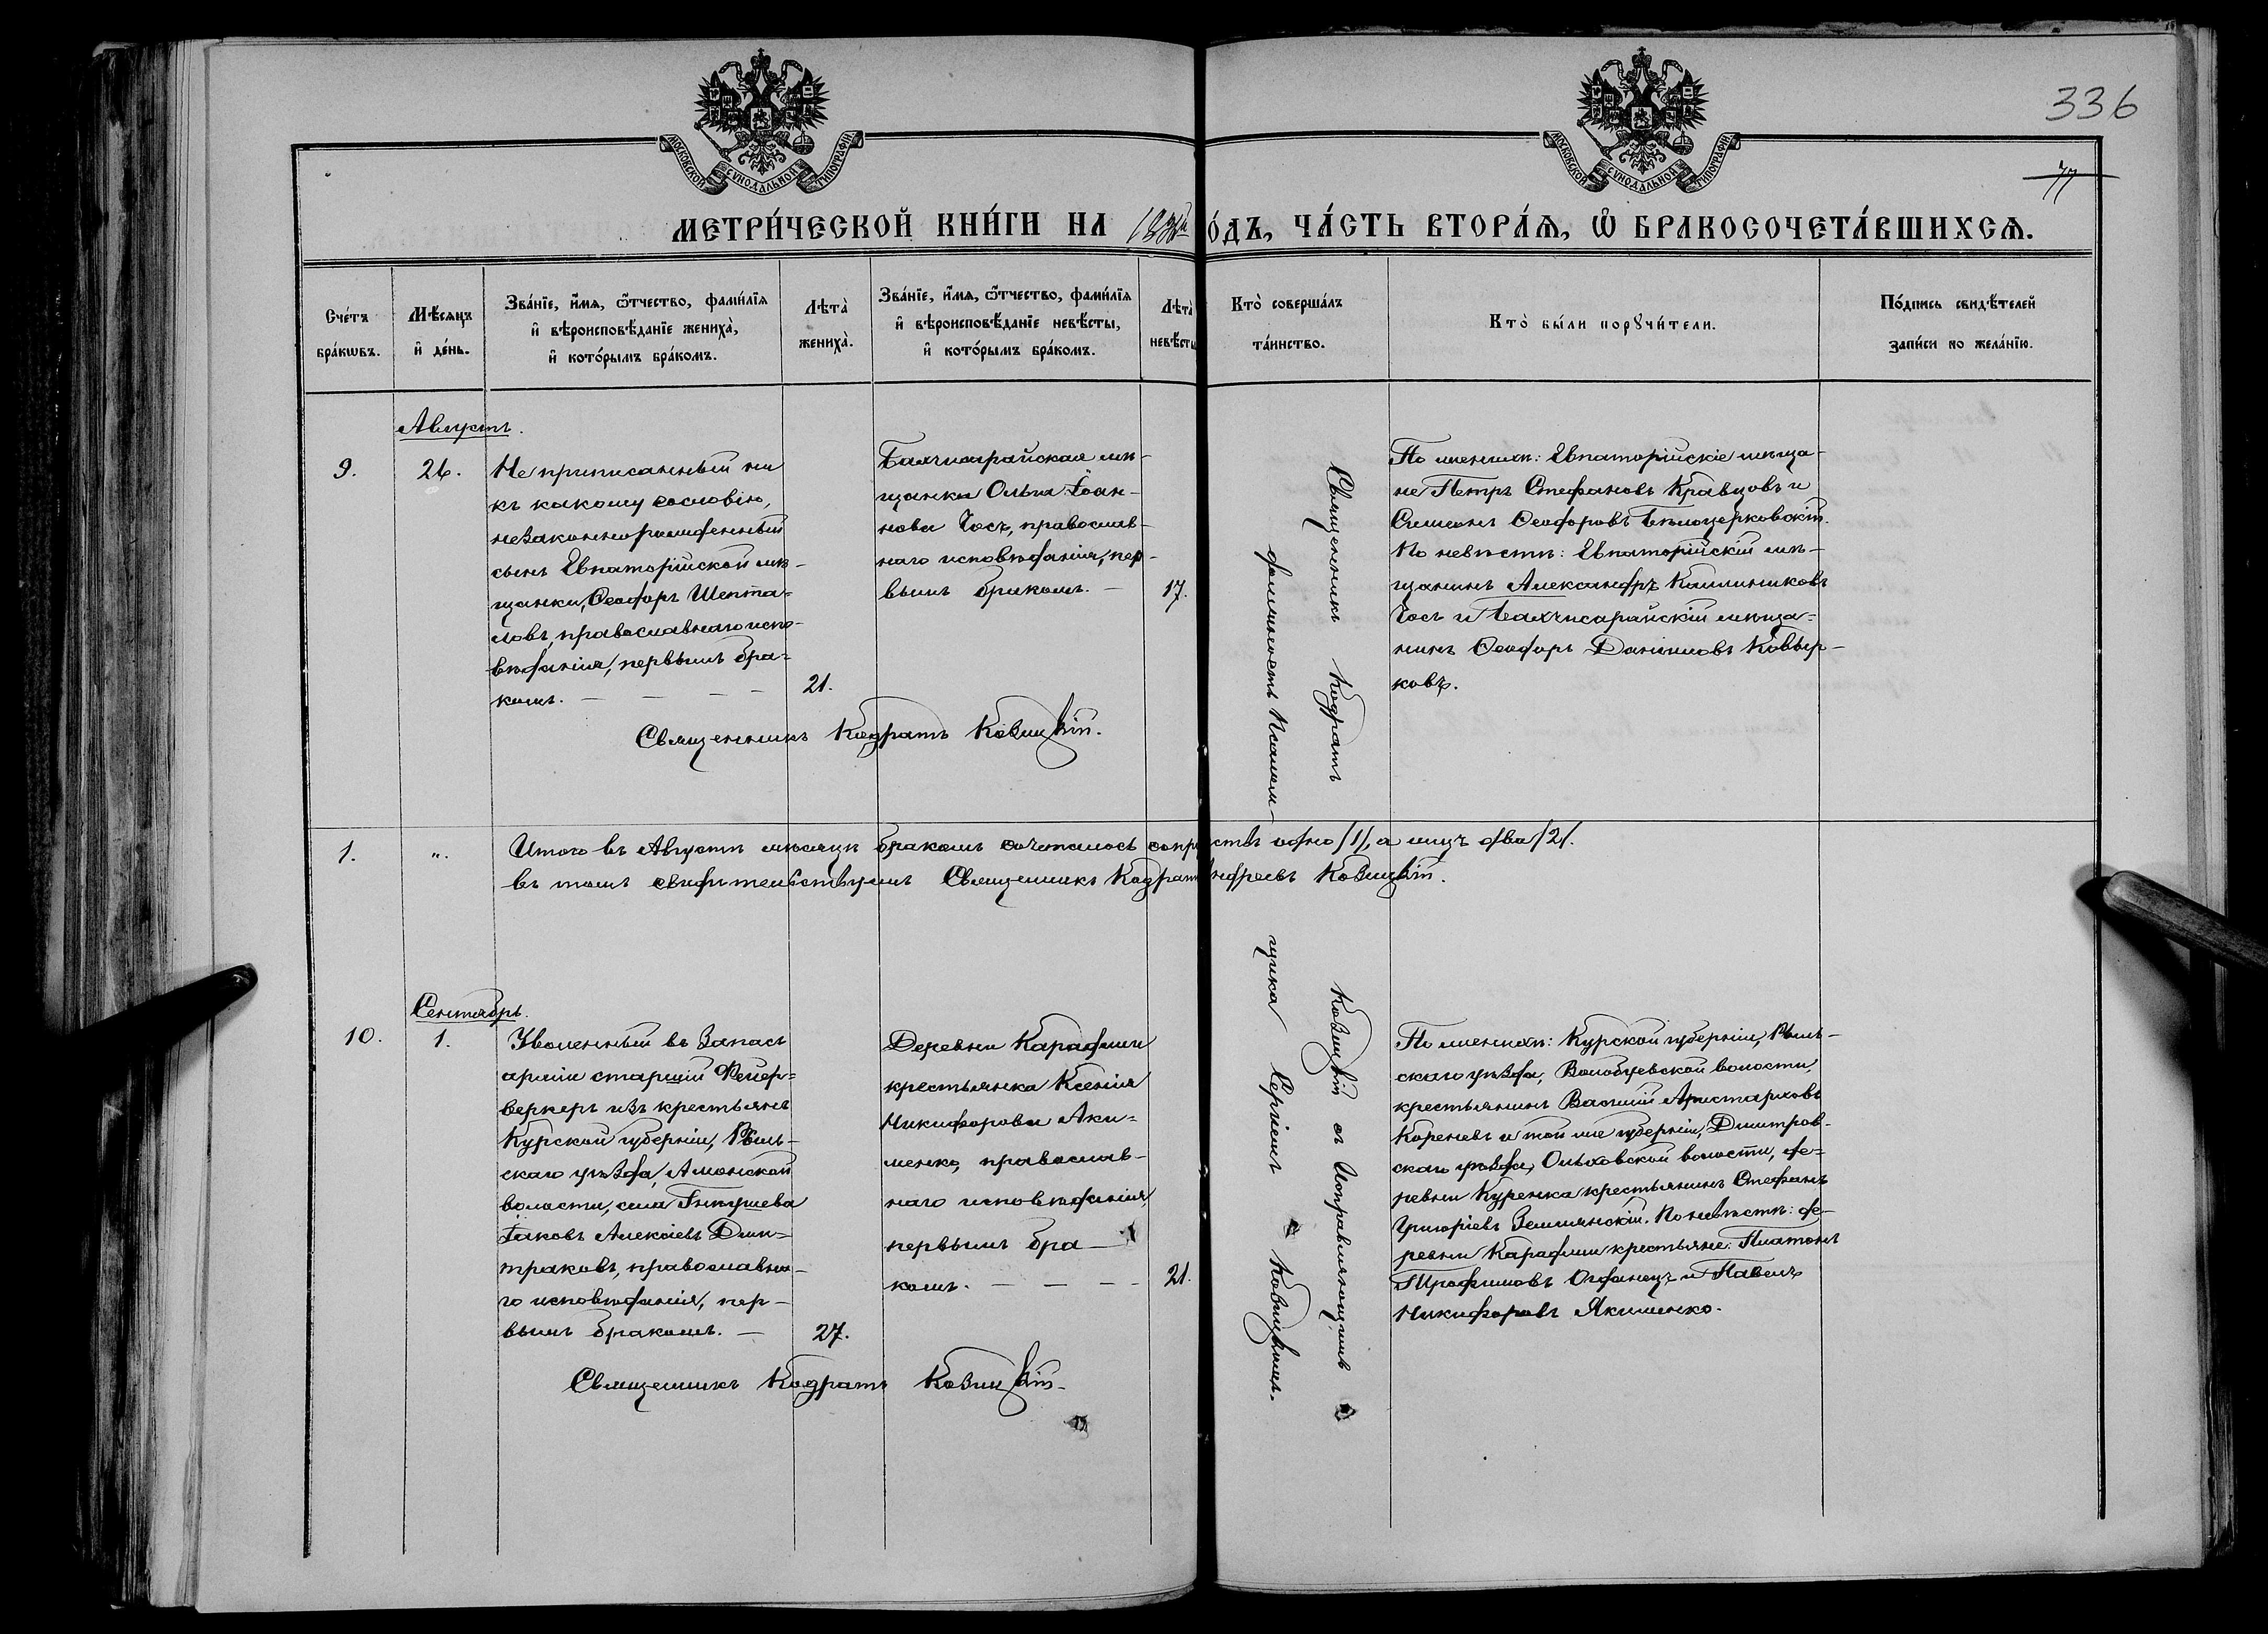 336
МОСКОВСКОЙ СѴНОДАЛЬНОЙ ТИПОГРАФІИ
МОСКОВСКОЙ СѴНОДАЛЬНОЙ ТИПОГРАФІИ
МЕТРИ́ЧЕСКОЙ КНИ́ГИ НА
О́ДЪ, ЧА́СТЬ ВТОРА́Ѧ, Ѽ БРАКОСОЧЕТА́ВШИХСѦ.
Сче́тъ
бра́кѡвъ.
Мѣ́сяцъ
и҆ де́нь.
Зва́нїе, и҆́мя, ѻ҆́тчество, фами́лїя
и҆ вѣроисповѣ́данїе жениха̀,
и҆ кото́рымъ бра́комъ.
Лѣта̀
жениха̀.
Зва́нїе, и҆́мя, ѻ҆́тчество, фами́лїя
и҆ вѣроисповѣ́данїе невѣ́сты,
и҆ кото́рымъ бра́комъ.
Лѣта̀
невѣ́сты
Кто̀ соверша́лъ
та́инство.
Кто̀ бы́ли порꙋчи́тели.
По́дпись свидѣ́телей
запи́си по жела́нїю.
Августъ.
9.
26.
Не приписанный ни
къ какому сословію,
незаконнорожденный
сынъ Евпаторійской мѣ-
щанки, Ѳеодоръ Шепта-
ловъ, православнаго испо-
вѣданія, первымъ бра-
комъ. — — — —
21.
Бахчисарайская мѣ-
щанка Ольга Іоан-
нова Чосъ, православ-
наго исповѣданія, пер-
вымъ бракомъ. —
17.
Священникъ Кодратъ Ковицкій съ Исправляющимъ
должность Псалом-
щика Сергіемъ Ковицкимъ.
По женихѣ: Евпаторійскіе мѣща-
не Петръ Стефановъ Кравцовъ и
Симеонъ Ѳеодоровъ Бѣлоцерковскій.
По невѣстѣ: Евпаторійскій мѣ-
щанинъ Александръ Каллиниковъ
Чосъ и Бахчисарайскій мѣща-
нинъ Ѳеодоръ Даніиловъ Ковыр-
ковъ.
Священникъ Кодратъ Ковицкій.
1.
".
Итого въ Августѣ мѣсяцѣ бракомъ сочеталось супружествъ одно /1/, а лицъ два /2/.
въ томъ свидѣтельствуемъ Священникъ Кодратъ Андреевъ Ковицкій.
Сентябрь.
10.
1.
Уволенный въ Запасъ
арміи старшій Фейер-
веркеръ изъ крестьянъ
Курской губерніи, Рыль-
скаго уѣзда, Амонской
волости, села
Іаковъ Алексіевъ Дми-
траковъ, православна-
го исповѣданія, пер-
вымъ бракомъ. —
27.
Деревни Караджи
крестьянка Ксенія
Никифорова Аки-
менко, православ-
наго исповѣданія,
первымъ бра-
комъ. — — — —
21.
По женихѣ: Курской губерніи, Рыль-
скаго уѣзда, Волобуевской волости,
крестьянинъ Василій Аристарховъ
Кореневъ и той же губерніи, Дмитров-
скаго уѣзда, Ольховской волости, де-
ревни Куренка крестьянинъ Стефанъ
Григоріевъ Землянскій. По невѣстѣ: де-
ревни Караджи крестьяне: Платонъ
Трофимовъ Огданецъ и Павелъ
Никифоровъ Якименко.
Священникъ Кодратъ Ковицкій.